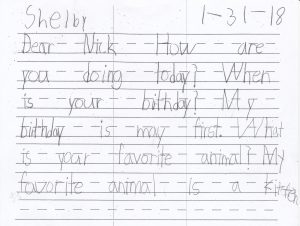 Shelby 1-31-18
Dear Nick How are
you doing today? When
is your birthday? My
birthday is may first. What
is your favorite animal? My
favorite animal is a kitten